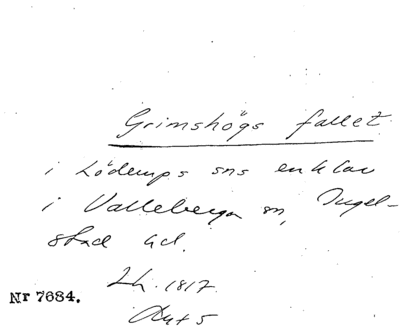 Grimshögs fallet
i Löderups sns enklav
i Valleberga sn, Ingel-
stad hd.
Lh. 1817
Akt 5
Nr 7684.